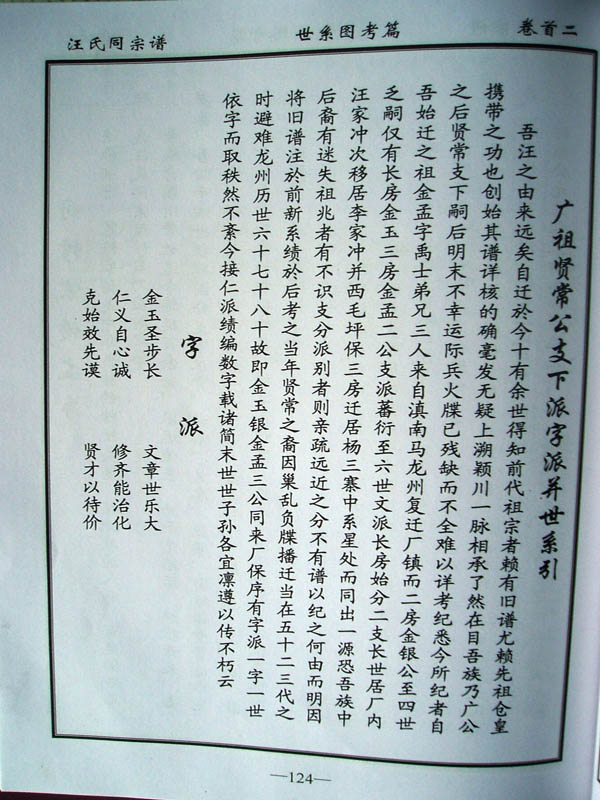 汪氏同宗谱
世系图考篇
卷首二
广祖贤常公支下派字派并世系引
吾汪之由来远矣自迁於今十有余世得知前代祖宗者赖有旧谱尤赖先祖仓皇
携带之功也创始其谱详核的确毫发无疑上溯颖川一脉相承了然在目吾族乃广公
之后贤常支下嗣后明末不幸运际兵火牒已残缺而不全难以详考纪悉今所纪者自
吾始迁之祖金孟字禹士弟兄三人来自滇南马龙州复迁厂镇而二房金银公至四世
乏嗣仅有长房金玉三房金孟二公支派蕃衍至六世文派长房始分二支长世居厂内
汪家冲次移居李家冲并西毛坪保三房迁居杨三寨中系星处而同出一源恐吾族中
后裔有迷失祖兆者有不识支分派别者则亲疏远近之分不有谱以纪之何由而明因
将旧谱注於前新系绩於后考之当年贤常之裔因巢乱负牒播迁当在五十二三代之
时避难龙州历世六十七十八十故即金玉银金孟三公同来厂保序有字派一字一世
依字而取秩然不紊今接仁派绩编数字载诸简末世世子孙各宜凛遵以传不朽云
字派
金玉圣步长 文章世乐大
仁义自心诚 修齐能治化
克始效先谟 贤才以待价
—124—